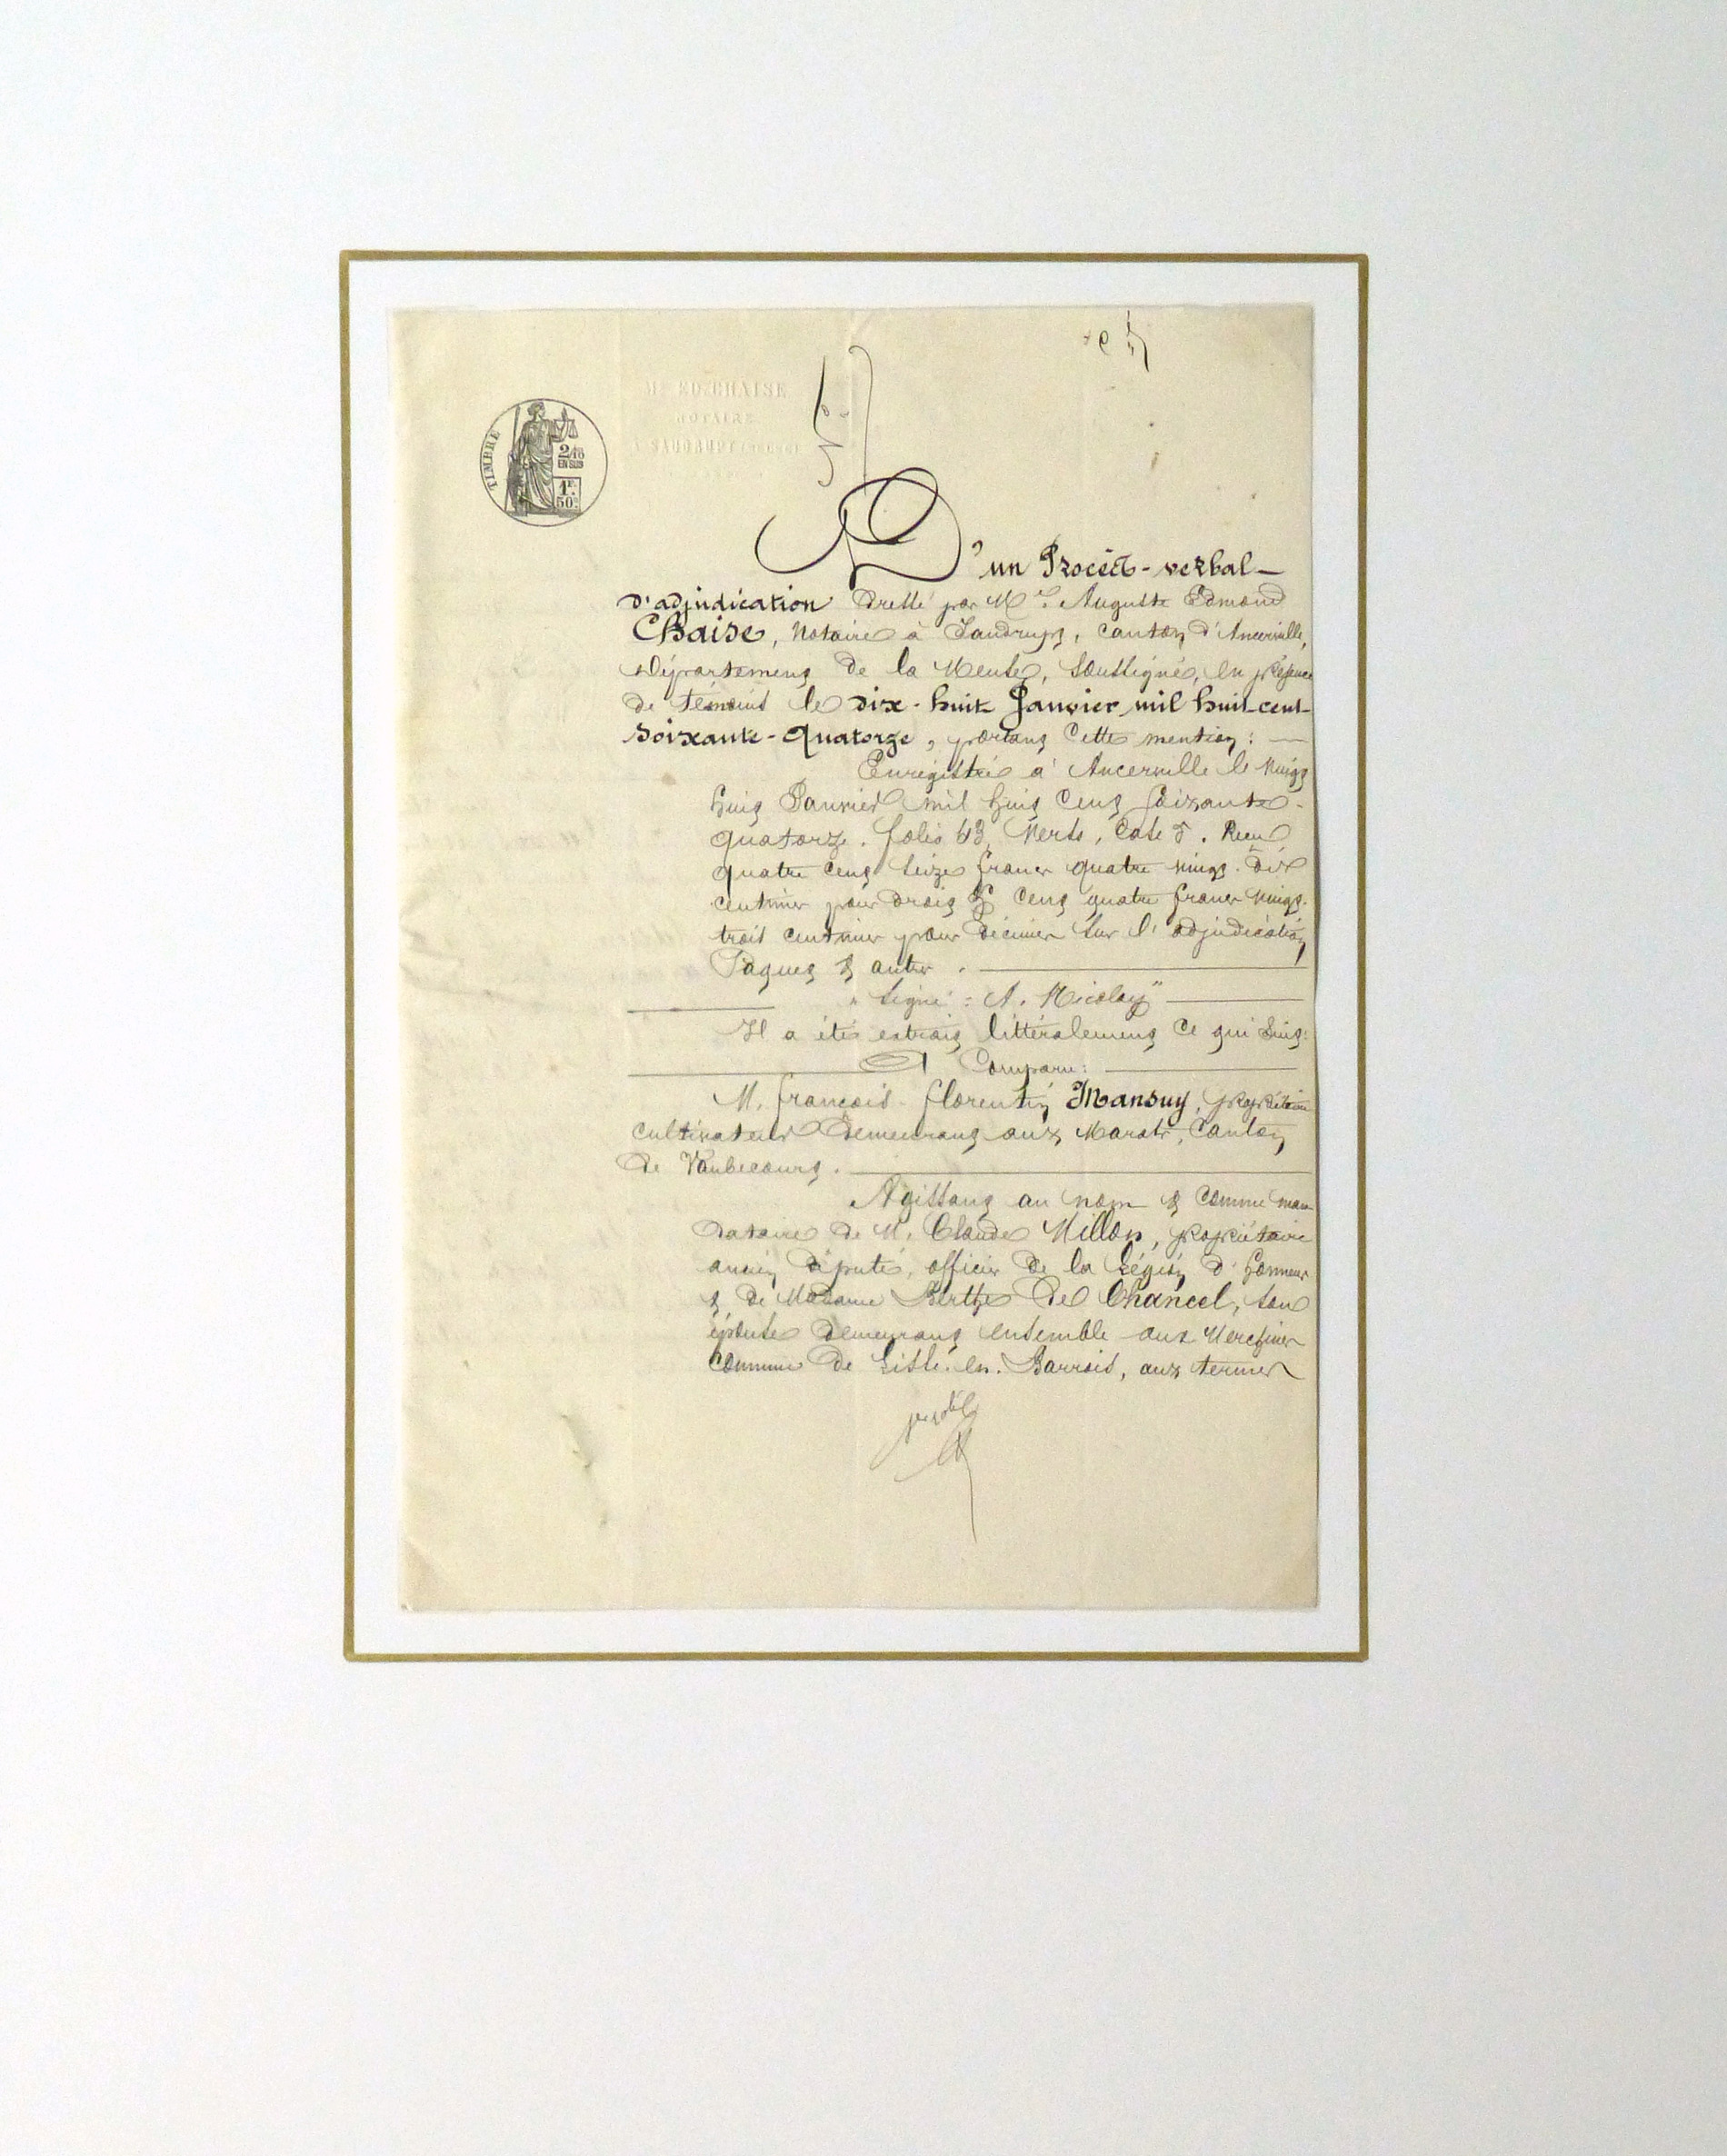 Me ED. CHAISE
NOTAIRE
A SAUDRUPT (Meuse)
TIMBRE
2/10
EN SUS
1F.
50c.
D'un Procès-verbal
d'adjudication dressé par Me Auguste Edmond
Chaise, Notaire à Saudrupt, canton d'Ancerville,
Département de la Meuse, soussigné, en présence
de témoins le dix-huit Janvier mil huit-cent-
soixante-quatorze, portant cette mention :
Enregistré à Ancerville le vingt
huit Janvier mil huit cent soixante-
quatorze. folio 43, Verso, Case 8. Reçu
quatre cent seize francs quatre vingt-dix
centimes pour droit & cent quatre francs vingt-
trois centimes pour décimes sur l'adjudication
& autres.
"signé : A. Nicolay"
Il a été extrait littéralement ce qui suit :
A Comparu :
M. François-Florentin Mansuy, propriétaire
cultivateur demeurant aux Marats, Canton
de Vaubecourt.
Agissant au nom & comme man-
dataire de M. Claude Millon, propriétaire
ancien député, officier de la Légion d'honneur
& de Madame Berthe De Chancel, son
épouse demeurant ensemble aux Merchines
commune de Lisle-en-Barrois, aux termes